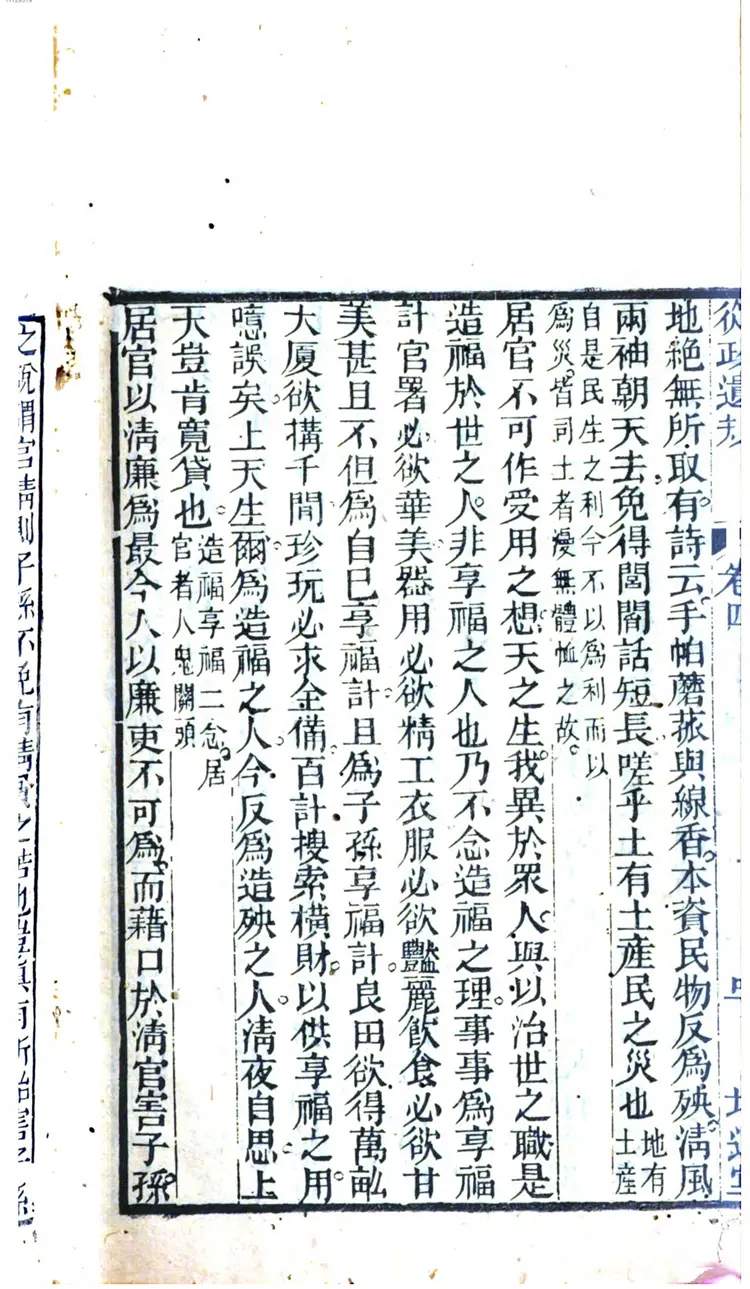 從政遺規 卷四
地絕無所取有詩云手帕蘑菰與線香本資民物反爲殃淸風
兩袖朝天去免得閭閻話短長嗟乎土有土産民之災也地有土産
自是民生之利今不以爲利而以
爲災皆司土者漫無體恤之故
居官不可作受用之想天之生我異於眾人與以治世之職是
造福於世之人非享福之人也乃不念造福之理事事爲享福
計官署必欲華美器用必欲精工衣服必欲豔麗飮食必欲甘
美甚且不但爲自己享福計且爲子孫享福計良田欲得萬畝
大厦欲搆千間珍玩必求全備百計搜索橫財以供享福之用
噫誤矣上天生爾爲造福之人今反爲造殃之人淸夜自思上
天豈肯寬貸也造福享福二念居
官者人鬼關頭
居官以淸廉爲最今人以廉吏不可爲而藉口於淸官害子孫